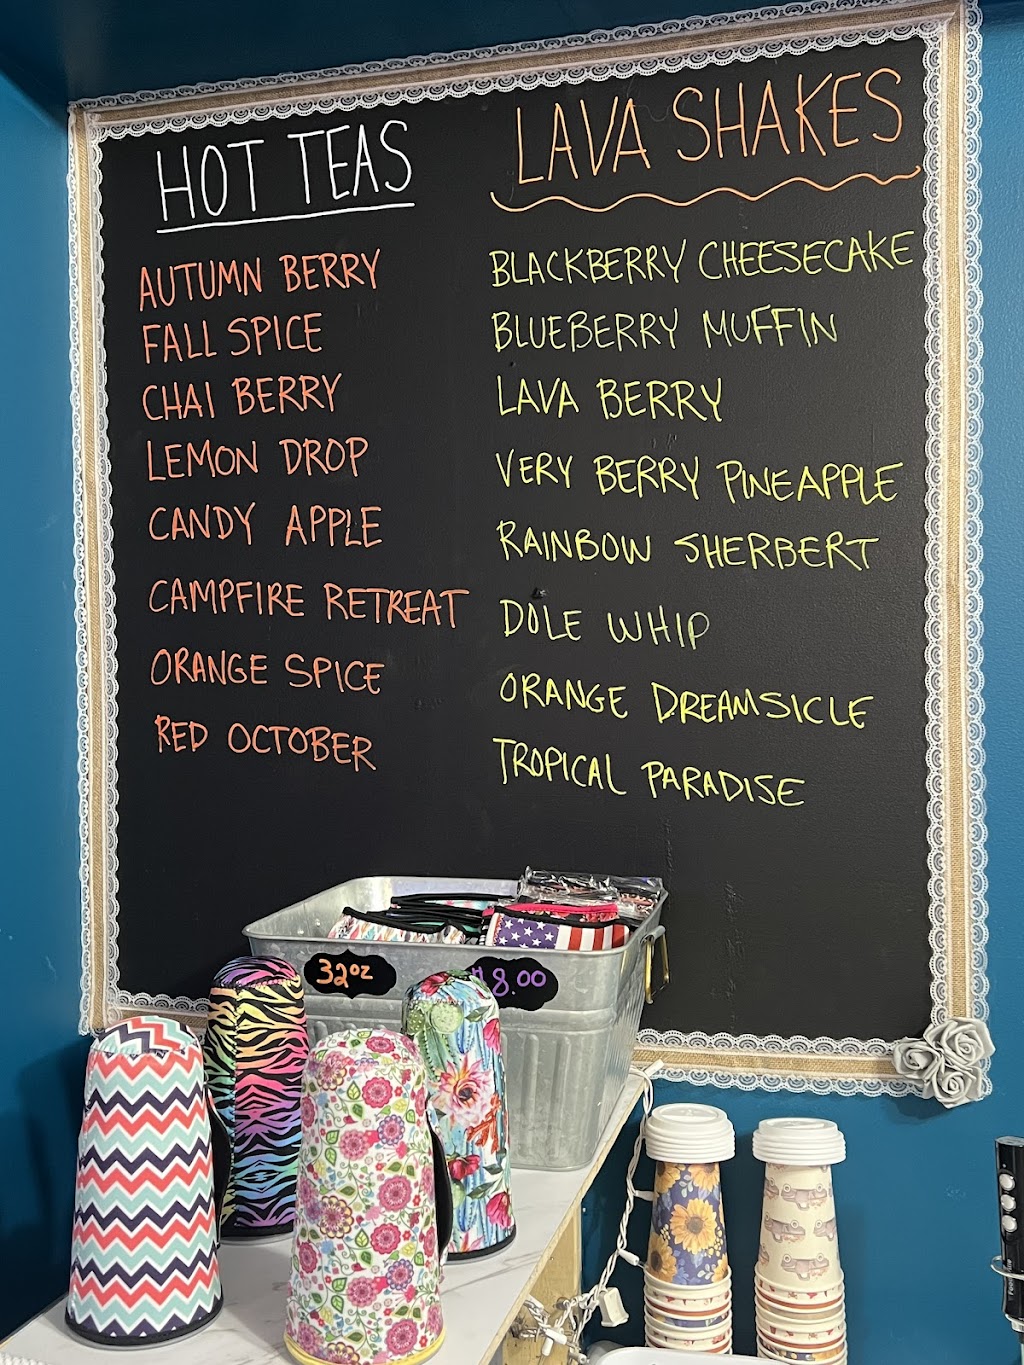 HOT TEAS
AUTUMN BERRY
FALL SPICE
CHAI BERRY
LEMON DROP
CANDY APPLE
CAMPFIRE RETREAT
ORANGE SPICE
RED OCTOBER
LAVA SHAKES
BLACKBERRY CHEESECAKE
BLUEBERRY MUFFIN
LAVA BERRY
VERY BERRY PINEAPPLE
RAINBOW SHERBERT
DOLE WHIP
ORANGE DREAMSICLE
TROPICAL PARADISE
32oz
8.00